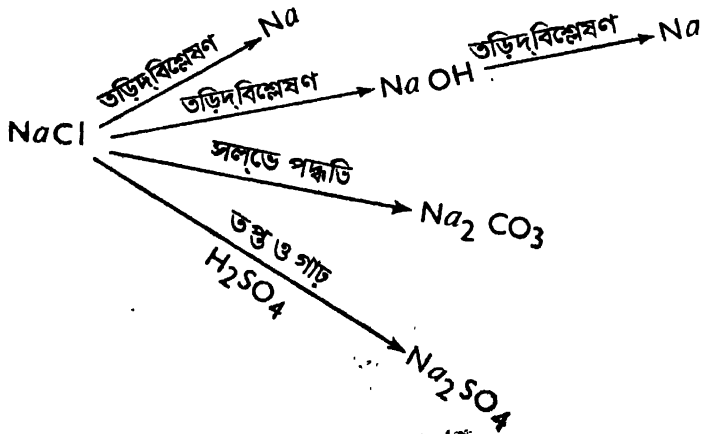 তড়িদ্‌বিশ্লেষণ
Na
তড়িদ্‌বিশ্লেষণ
NaOH
তড়িদ্‌বিশ্লেষণ
Na
NaCl
সল্‌ভে পদ্ধতি
Na₂ CO₃
তপ্ত ও গাঢ়
H₂SO₄
Na₂SO₄